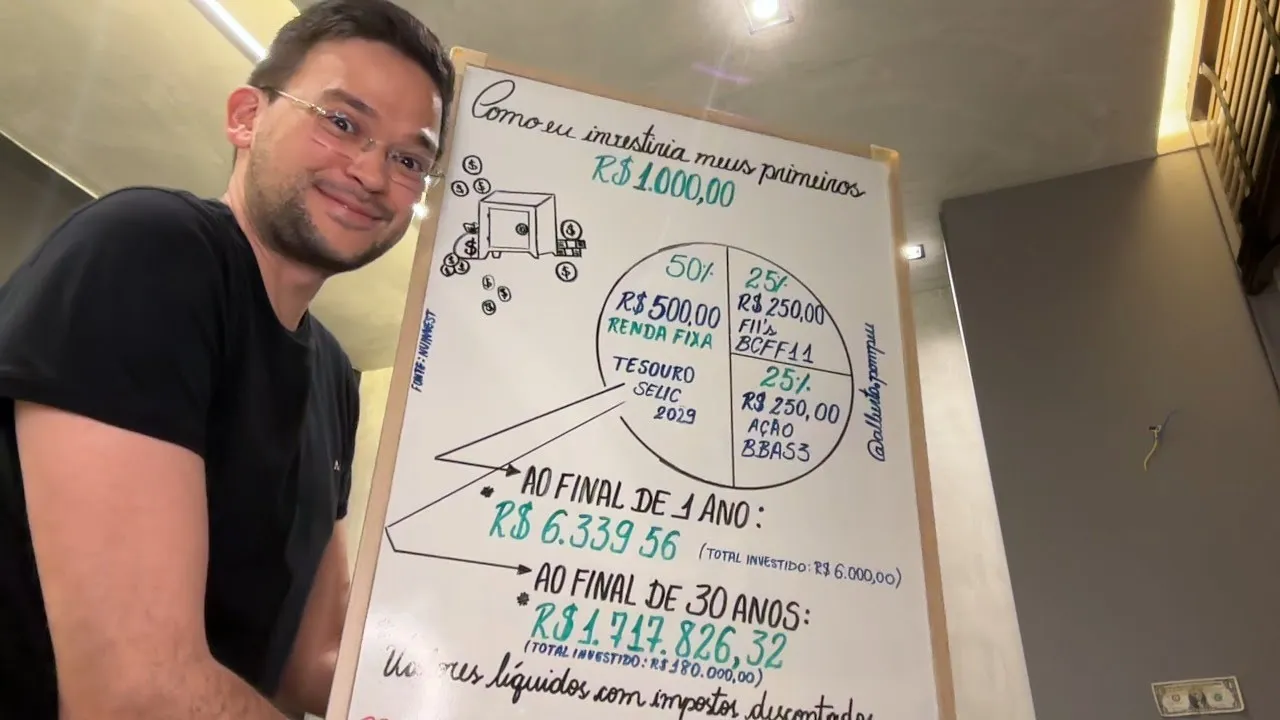 Como eu investiria meus primeiros
R$ 1.000,00
50%
R$ 500,00
RENDA FIXA
TESOURO
SELIC
2029
25%
R$ 250,00
FII's
BCFF11
25%
R$ 250,00
AÇÃO
BBAS3
FONTE: NUINVEST
@alberto.pompeu
AO FINAL DE 1 ANO:
* R$ 6.339 56 (TOTAL INVESTIDO: R$ 6.000,00)
AO FINAL DE 30 ANOS:
* R$ 1.717.826,32
(TOTAL INVESTIDO: R$ 180.000,00)
líquidos com impostos